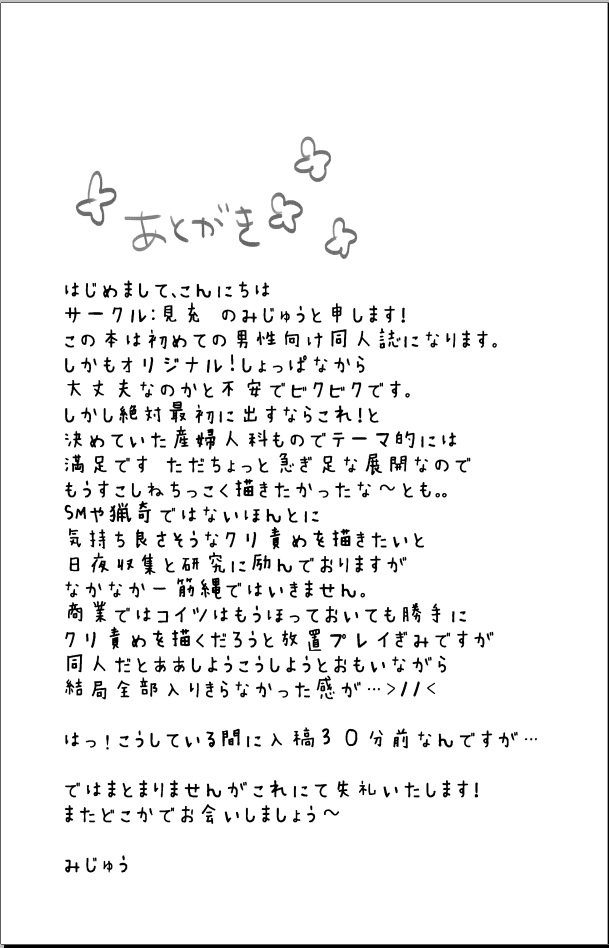 あとがき
はじめまして、こんにちは
サークル:見充　のみじゅうと申します!
この本は初めての男性向け同人誌になります。
しかもオリジナル!しょっぱなから
大丈夫なのかと不安でビクビクです。
しかし絶対最初に出すならこれ!と
決めていた産婦人科ものでテーマ的には
満足です　ただちょっと急ぎ足な展開なので
もうすこしねちっこく描きたかったな～とも。。
SMや猟奇ではないほんとに
気持ち良さそうなクリ責めを描きたいと
日夜収集と研究に励んでおりますが
なかなか一筋縄ではいきません。
商業ではコイツはもうほっておいても勝手に
クリ責めを描くだろうと放置プレイぎみですが
同人だとああしようこうしようとおもいながら
結局全部入りきらなかった感が…>//<
はっ!こうしている間に入稿30分前なんですが…
ではまとまりませんがこれにて失礼いたします!
またどこかでお会いしましょう～
みじゅう